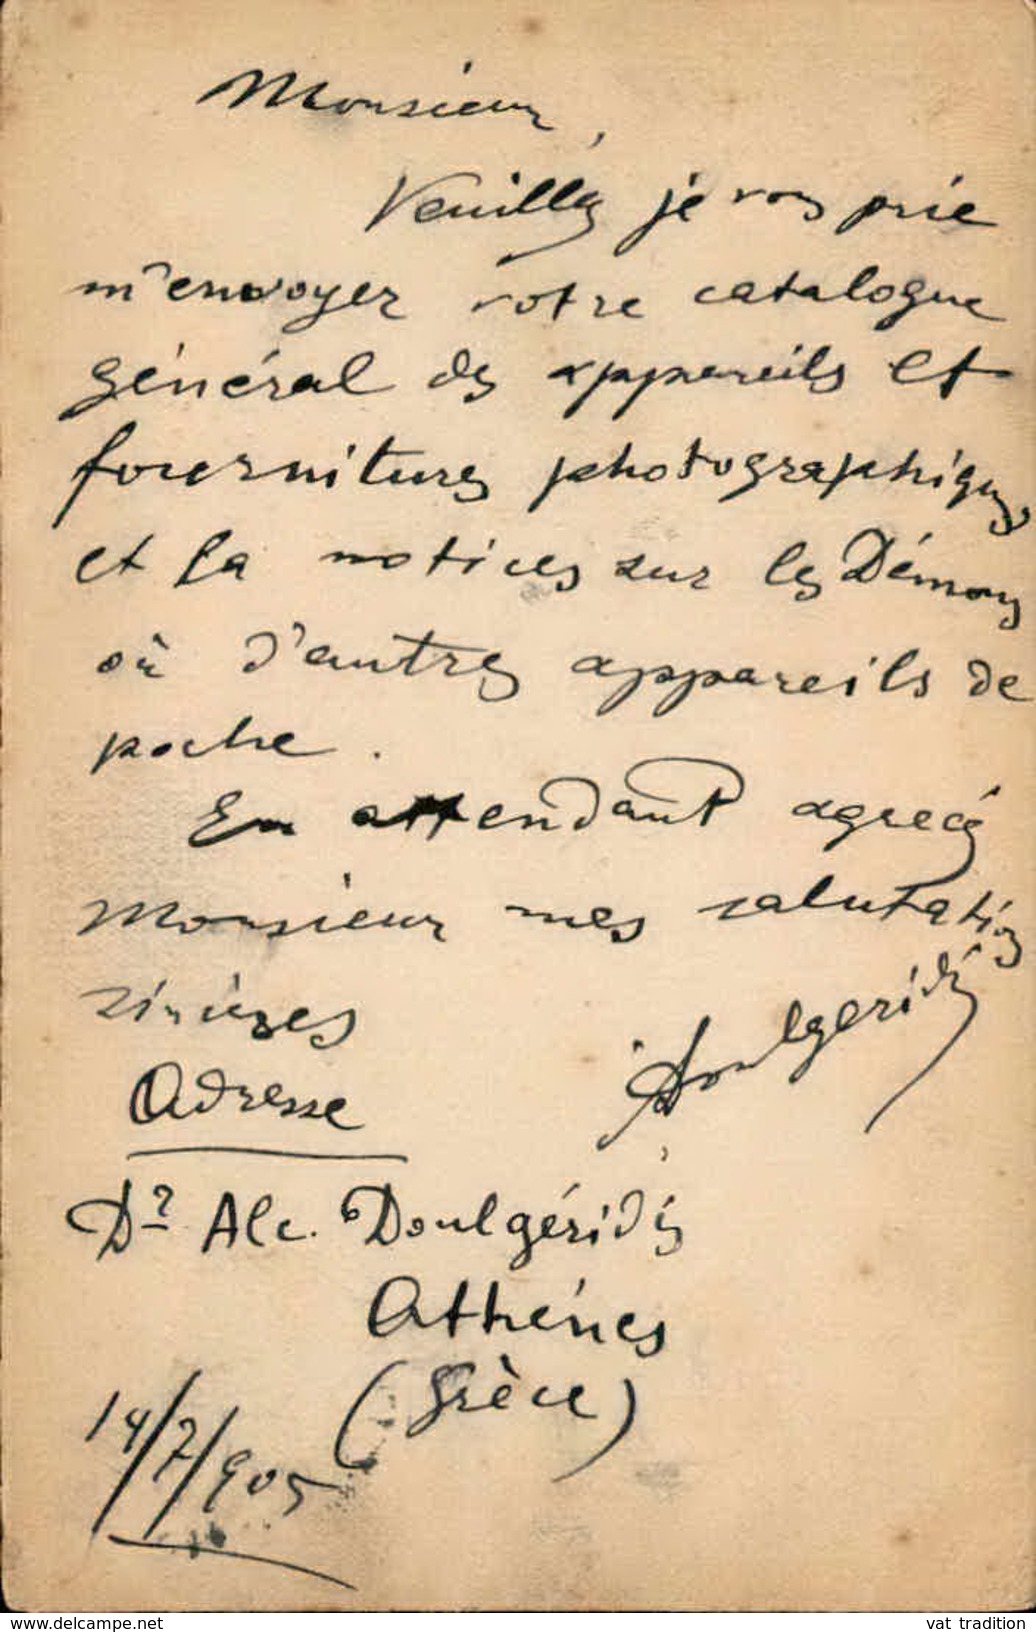 Monsieur,
Veuillez je vous prie
m'envoyer votre catalogue
général des appareils et
fournitures photographiques
et la notices sur les Démons
où d'autres appareils de
poche.
En attendant agreéz
Monsieur mes salutations
sincères
Doulgéridis
Adresse
Dr Alc. Doulgéridis
Athénes
(Grèce)
14/7/905
www.delcampe.net
vat tradition